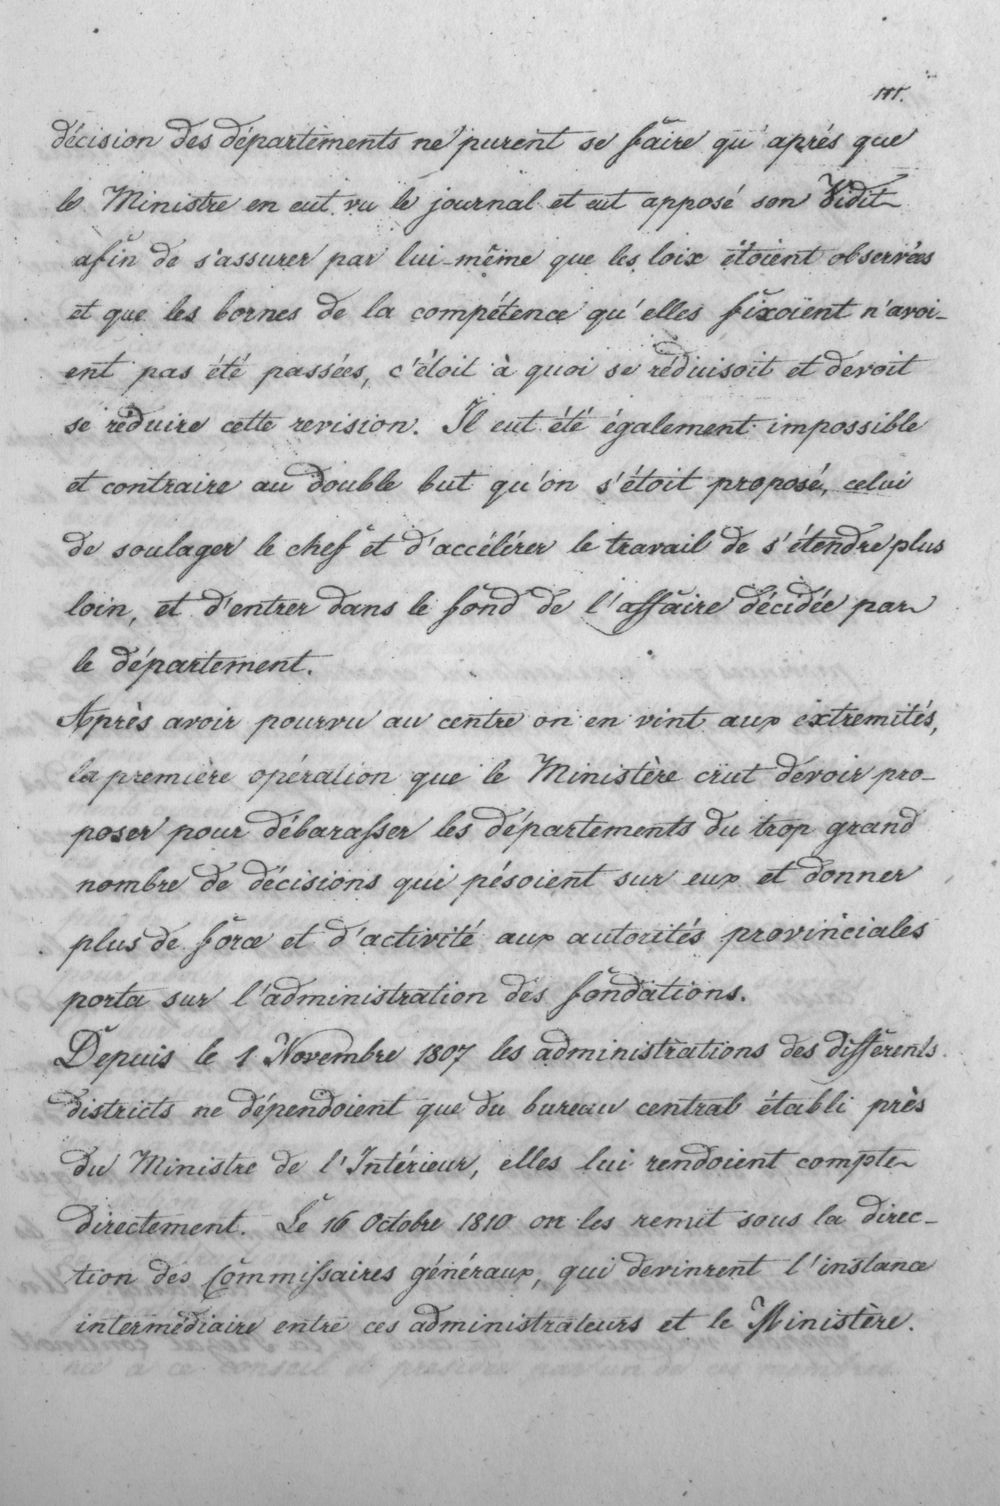 111.
décision des départements ne purent se faire qu'après que
le Ministre en eut vu le journal et eut apposé son Vidit
afin de s'assurer par lui-même que les loix étoient observées
et que les bornes de la compétence qu'elles fixoient n'avoi-
ent pas été passées, c'étoit à quoi se réduisoit et devoit
se réduire cette revision. Il eut été également impossible
et contraire au double but qu'on s'étoit proposé, celui
de soulager le chef et d'accélérer le travail de s'étendre plus
loin, et d'entrer dans le fond de l'affaire décidée par
le département.
Après avoir pourvu au centre on en vint aux extremités,
la première opération que le Ministère crut devoir pro-
poser pour débarasser les départements du trop grand
nombre de décisions qui pésoient sur eux et donner
plus de force et d'activité aux autorités provinciales
porta sur l'administration des fondations.
Depuis le 1 Novembre 1807 les administrations des différents
districts ne dépendoient que du bureau central établi près
du Ministre de l'Intérieur, elles lui rendoient compte
directement. Le 16 Octobre 1810 on les remit sous la direc-
tion des Commissaires généraux, qui devinrent l'instance
intermédiaire entre ces administrateurs et le Ministère.